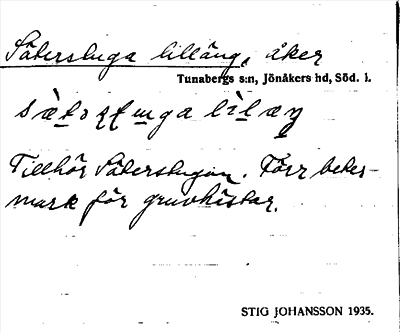 Säterstuga lilläng, åker
Tunabergs s:n, Jönåkers hd, Söd. l.
Tillhör Säterstugan. Förr betes-
mark för gruvhästar.
STIG JOHANSSON 1935.